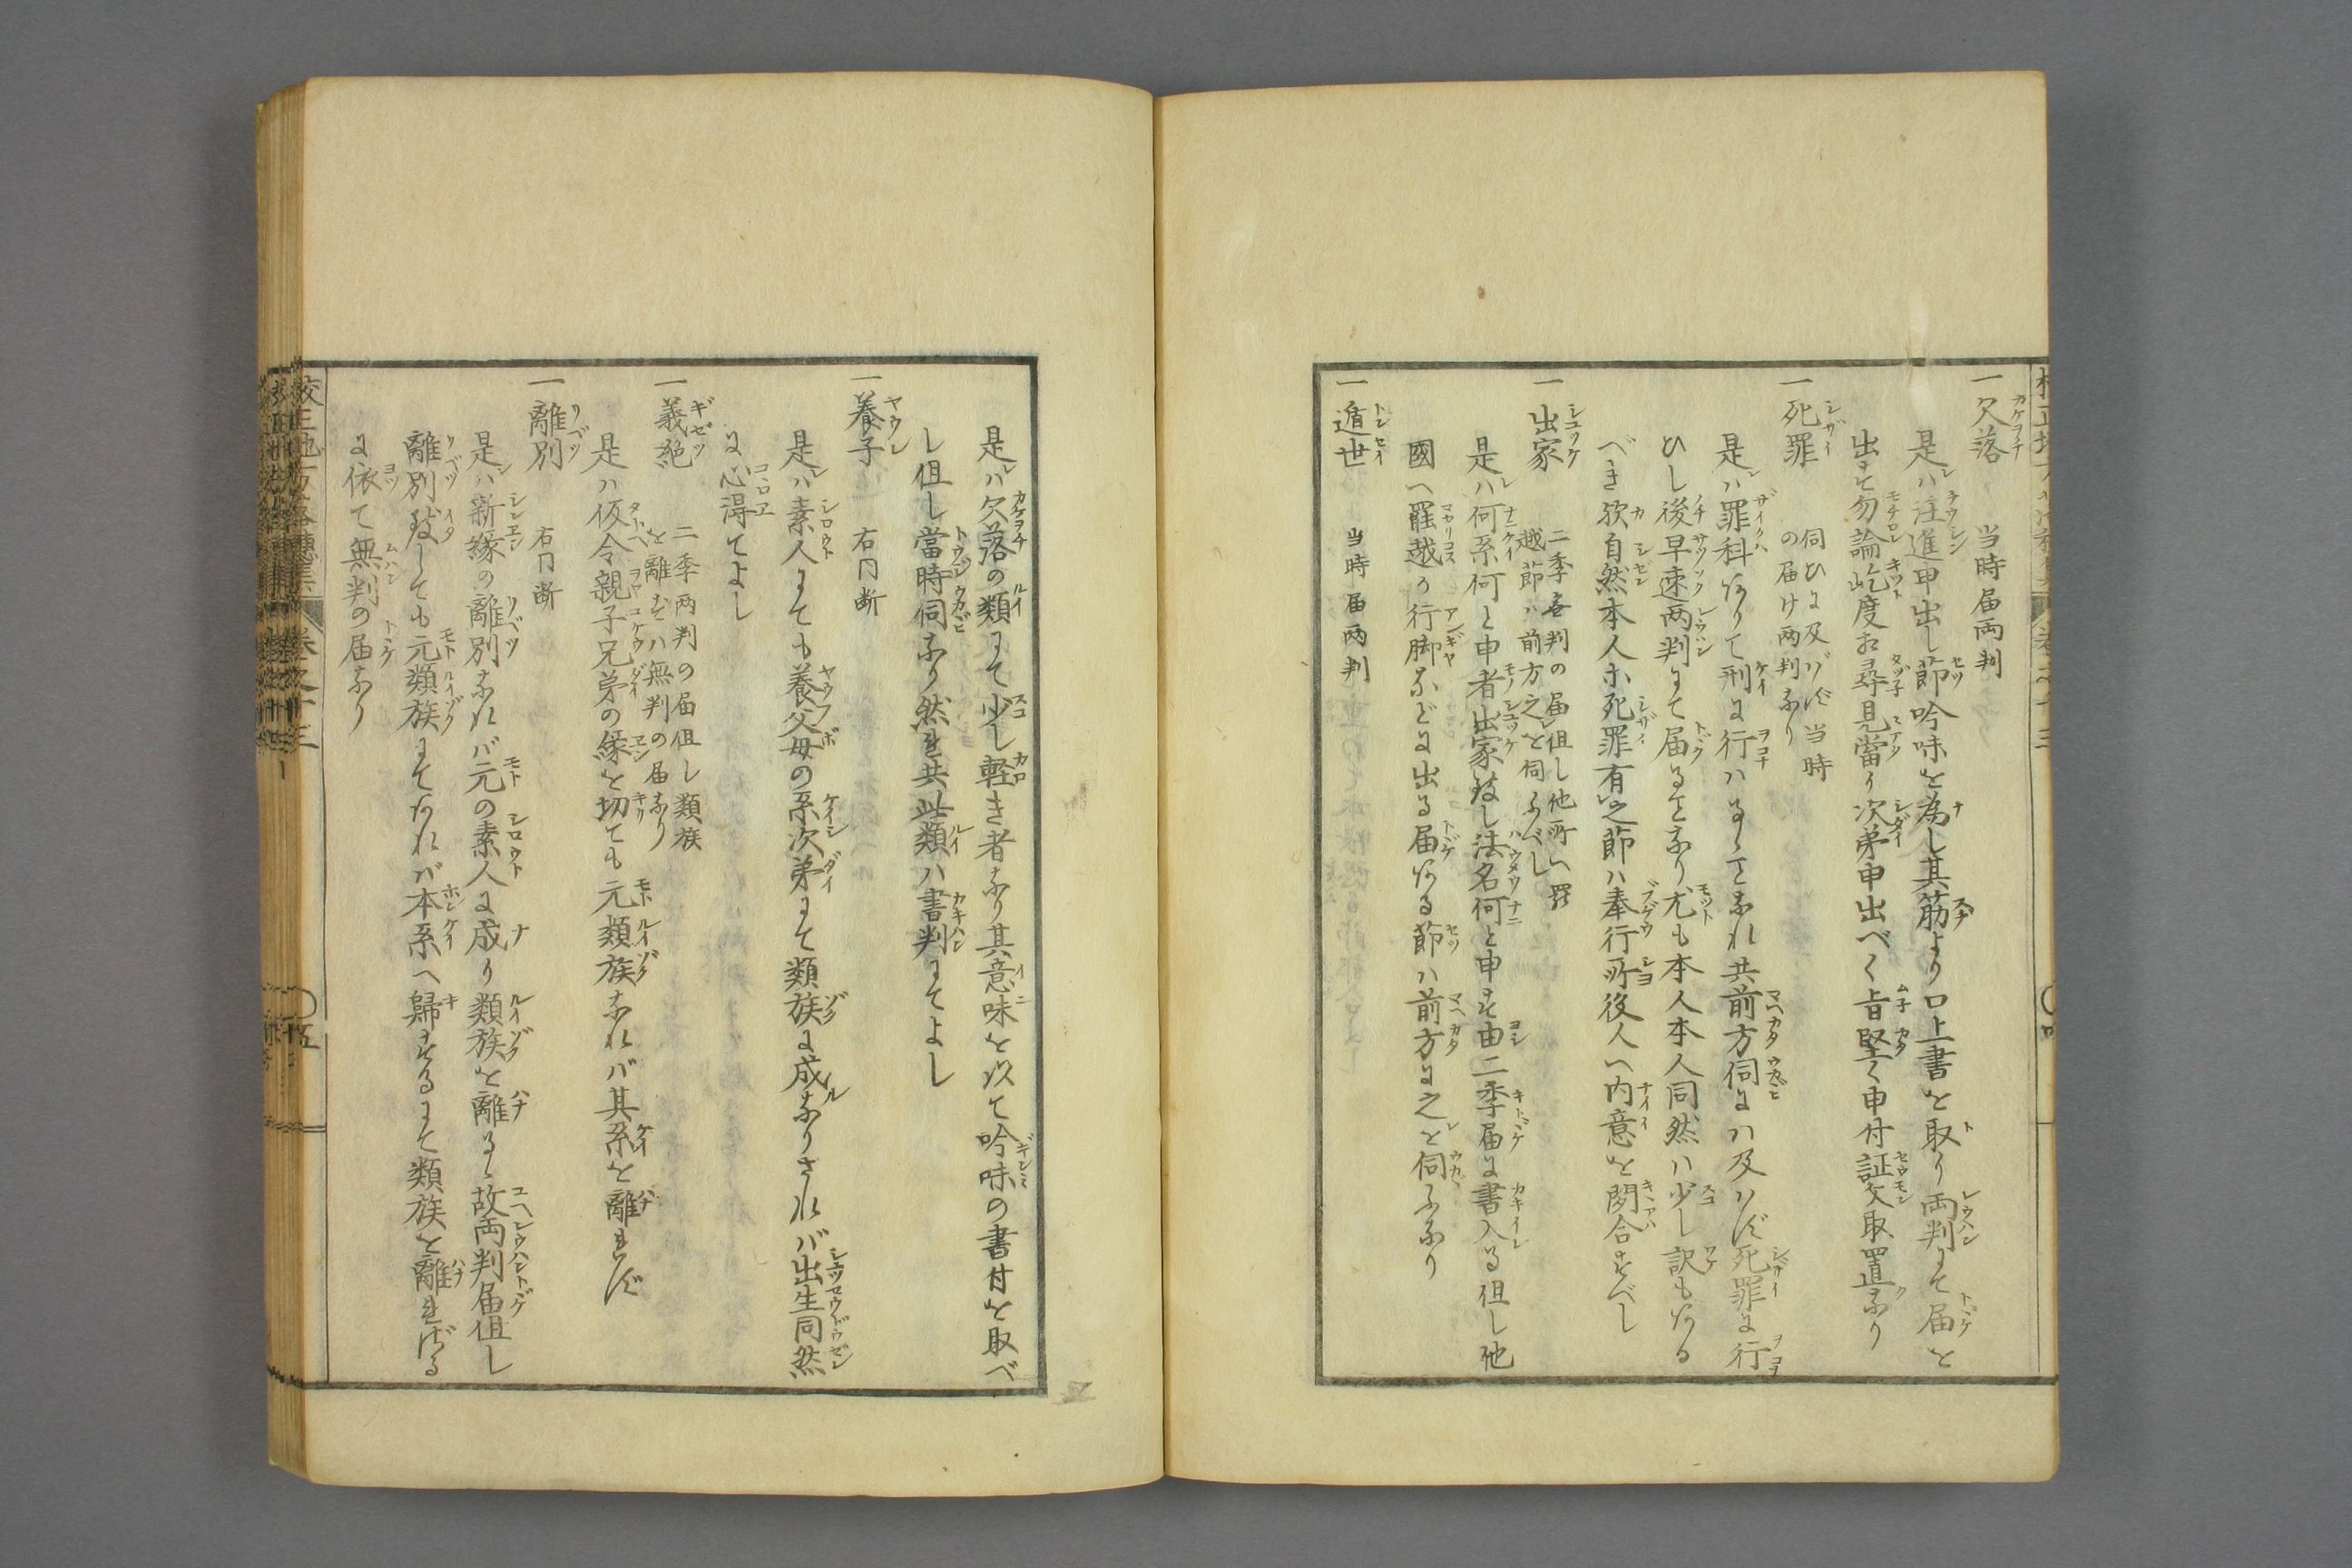 一欠落　当時届両判
是ハ注進申出し節吟味を為し其筋より口上書を取り両判にて届を
出す勿論屹度相尋見當り次第申出べく旨堅く申付証文取置なり
一死罪　伺ひに及バず当時
の届け両判なり
是ハ罪科ありて刑に行ハるゝなれ共前方伺にハ及ハず死罪に行
ひし後早速両判にて届るなり尤も本人本人同然ハ少し訳もある
べき歟自然本人ホ死罪有之節ハ奉行所役人へ内意を聞合すべし
一出家　二季無判の届但し他所へ罷
越節ハ前方之を伺ふべし
是ハ何系何と申者出家致し法名何と申す由二季届に書入る但し他
國へ罷越か行脚などに出る届ある節ハ前方に之を伺ふなり
一遁世　当時届両判
是ハ欠落の類にて少し軽き者なり其意味を以て吟味の書付を取べ
し但し當時伺なり然れ共此類ハ書判にてよし
一養子　右同断
是ハ素人にても養父母の系次第にて類族に成なりされバ出生同然
に心得てよし
一義絶　二季両判の届但し類族
を離れずハ無判の届なり
是ハ仮令親子兄弟の縁を切ても元類族なれバ其系を離れず
一離別　右同断
是ハ新縁の離別なれバ元の素人に成り類族を離るゝ故両判届但し
離別致しても元類族にてあれバ本系へ歸するにて類族を離れざる
に依て無判の届なり
校正地方落穂集　巻之十三　五